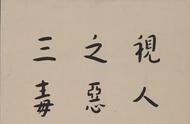 視人
之惡
三毒